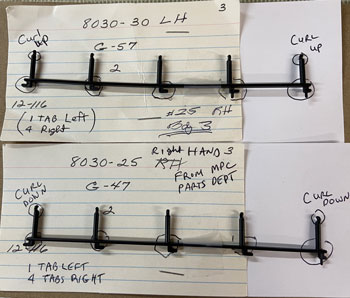 3
8030-30 LH
Curl
up
G-57
CURL
UP
2
12-116
(1 TAB Left)
4 Right
#25 RH
3
Right HAND 3
8030-25 RH
FROM MPC
PARTS DEPT
CURL
DOWN
G-47
CURL
DOWN
2
12-116
1 TAB LEFT
4 TABS RIGHT